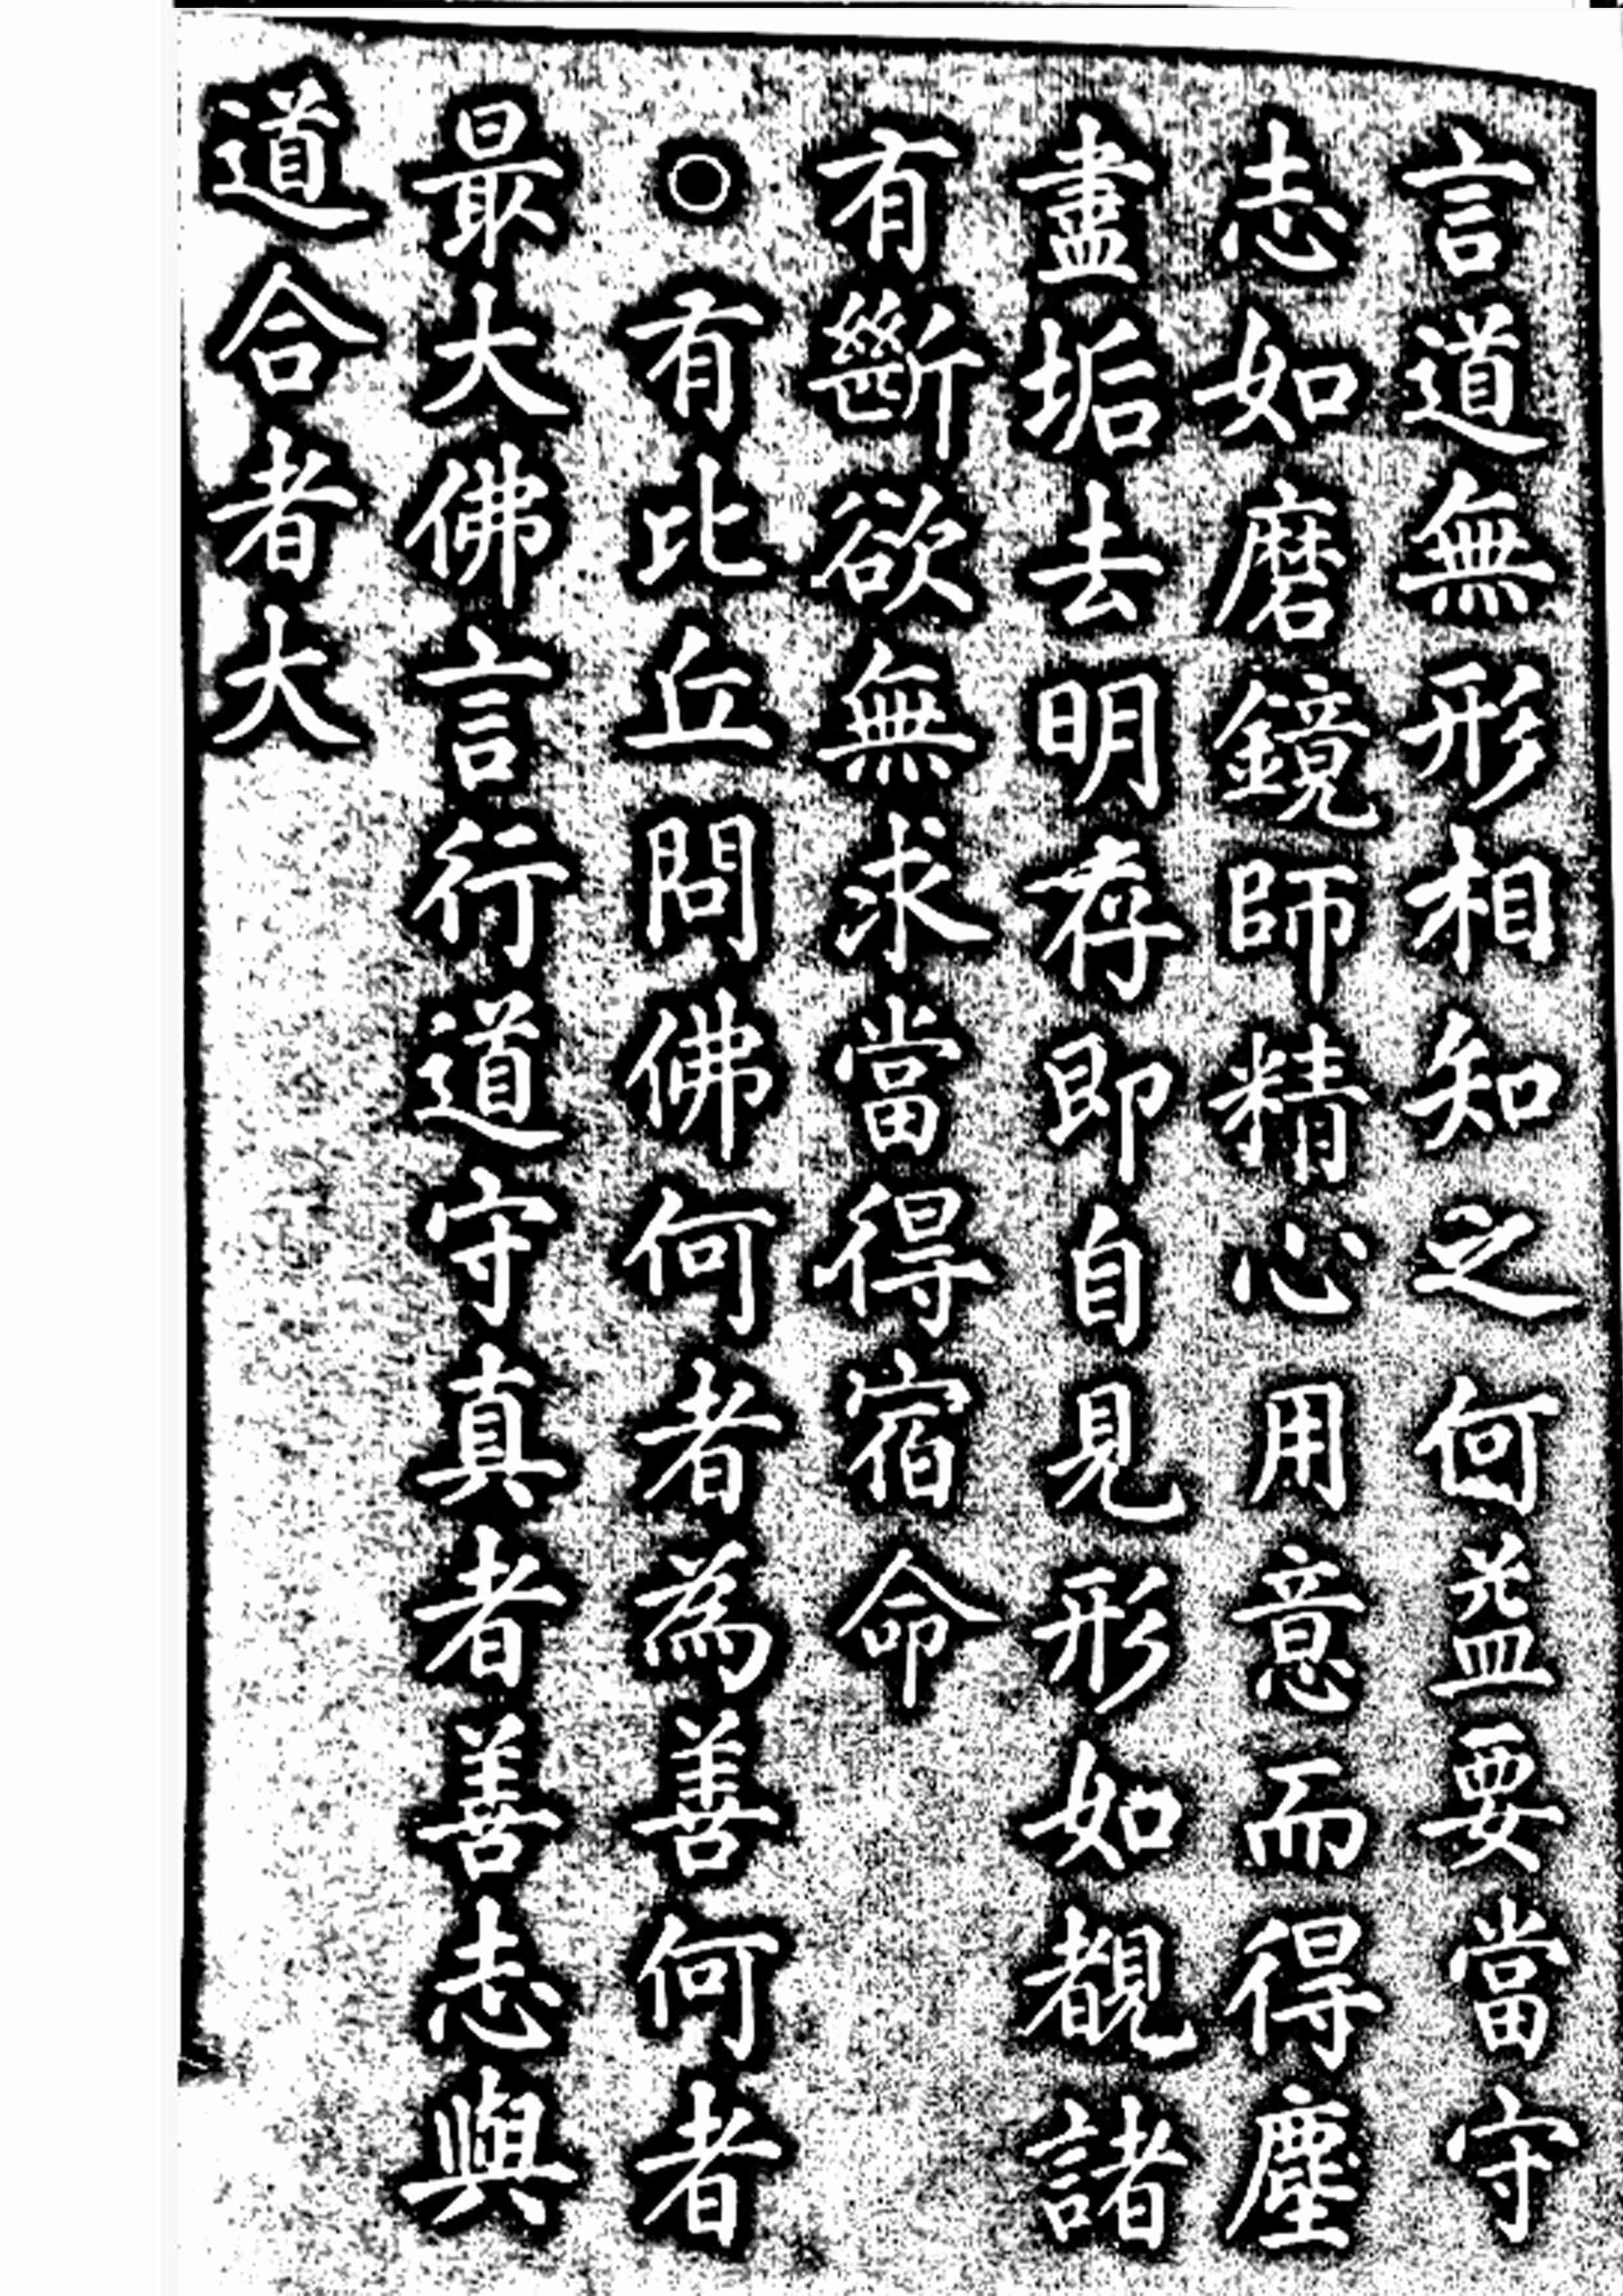 言道無形相知之何益要當守
志如磨鏡師精心用意而得塵
盡垢去明存即自見形如覩諸
有斷欲無求當得宿命
○有比丘問佛何者為善何者
最大佛言行道守真者善志與
道合者大